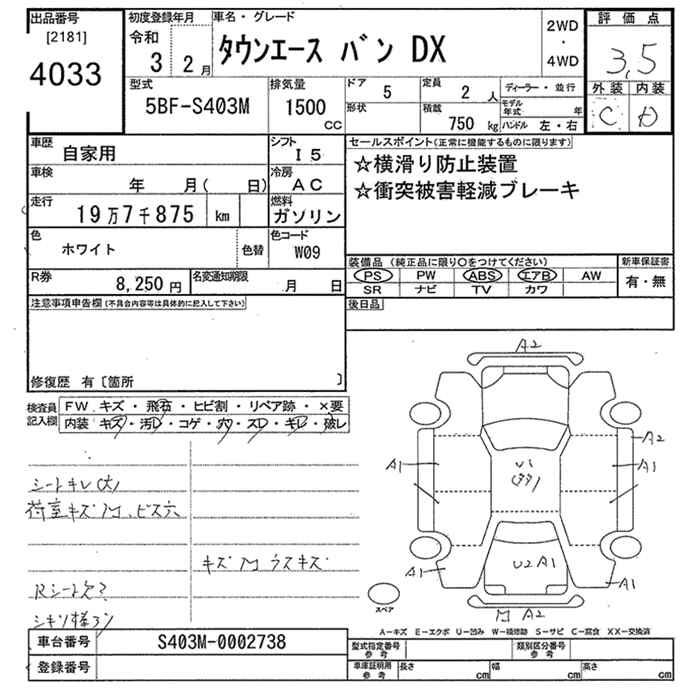 出品番号
[2181]
4033
初度登録年月
令和
3 2月
車名・グレード
タウンエース バン DX
2WD
・
4WD
評価点
3.5
外装 内装
C D
型式
5BF-S403M
排気量
1500
CC
ドア
5
定員
2 人
ディーラー・並行
形状
積載
750 kg
モデル年式 年
ハンドル 左・右
車歴
自家用
シフト
I5
車検
年 月( 日)
冷房
AC
走行
19万7千875 km
燃料
ガソリン
色
ホワイト
色替
色コード
W09
R券
8,250円
名変通知期限
月 日
セールスポイント(正常に機能するものに限ります)
☆横滑り防止装置
☆衝突被害軽減ブレーキ
装備品 (純正品に限り○をつけてください)
PS PW ABS エアB AW
SR ナビ TV カワ
新車保証書
有・無
後日品
注意事項申告欄(不具合内容等は具体的に記入して下さい)
修復歴 有〔箇所 〕
検査員記入欄
FW キズ・飛石・ヒビ割・リペア跡・×要
内装 キズ・汚レ・コゲ・穴・スレ・キレ・破レ
シートキレ(大)
荷室キズM、ビス穴
キズM ラスキズ
Rシート欠?
A2
A2
A1
A1
U1
U2 A1
A1
A1
M A2
スペア
A-キズ E-エクボ U-凹み W-補修跡 S-サビ C-腐食 XX-交換済
車台番号
S403M-0002738
登録番号
型式指定番号
参考
類別区分番号
参考
車庫証明用
参考
長さ cm
幅 cm
高さ cm